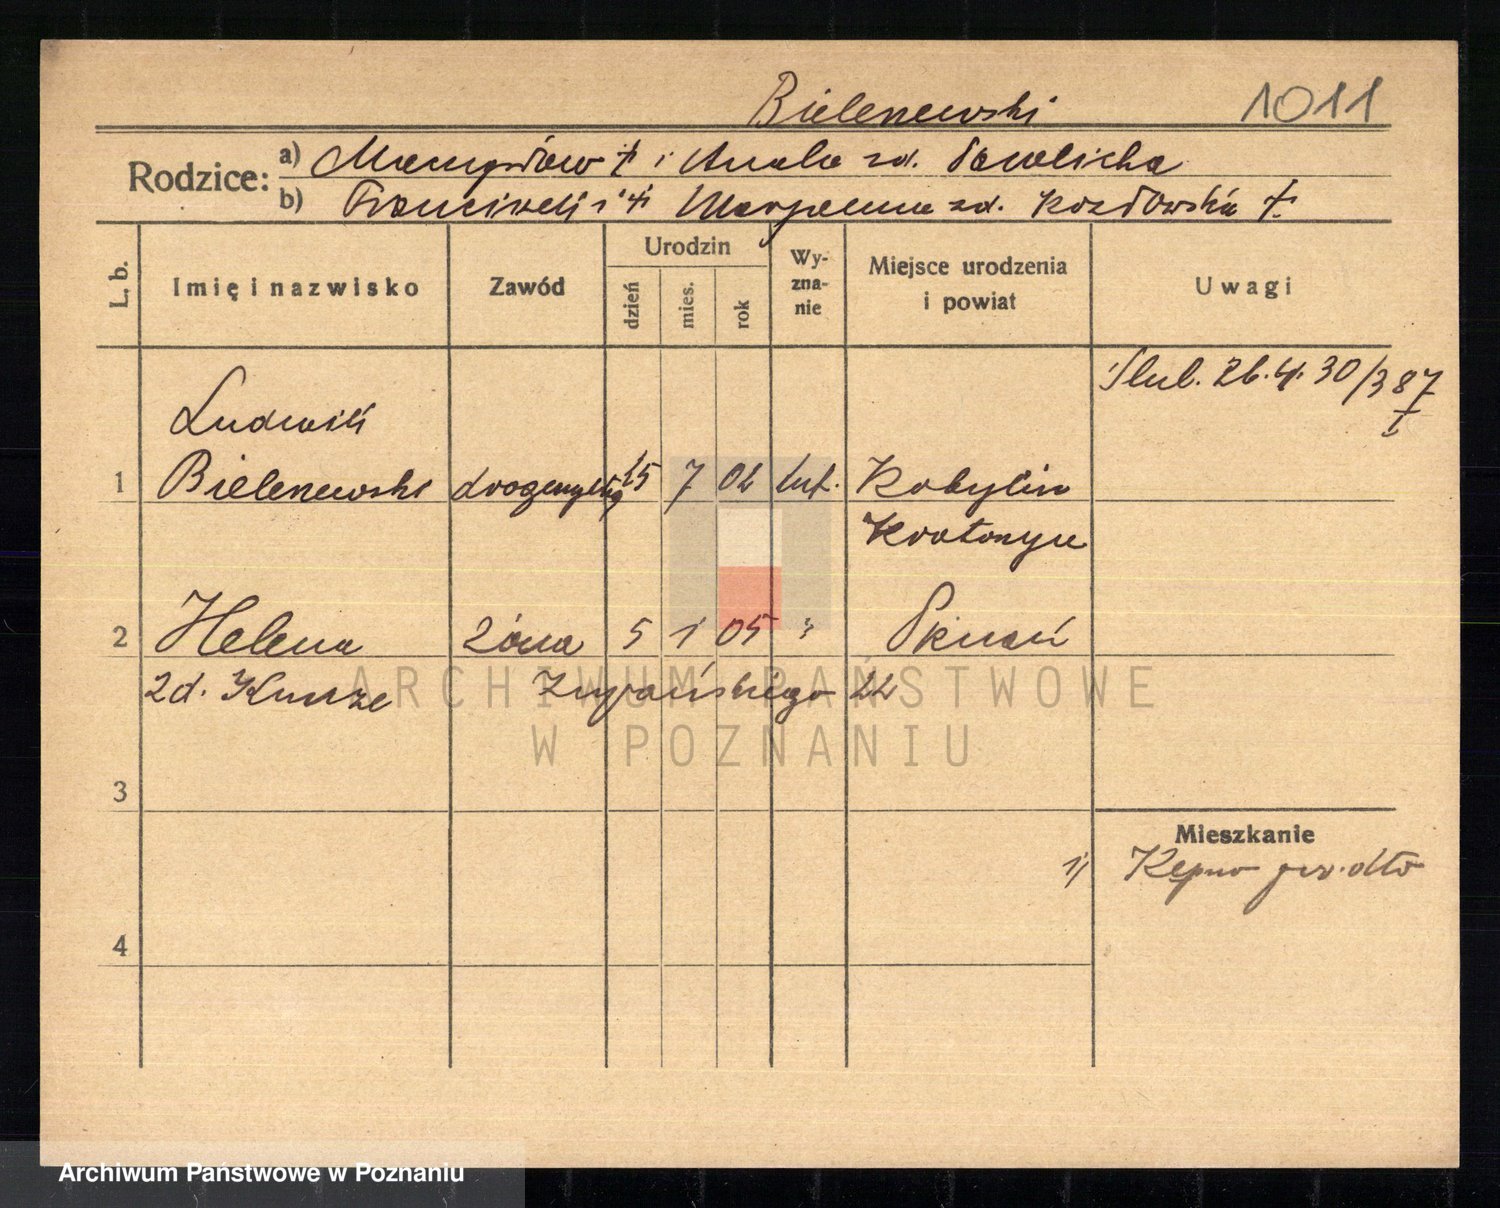 Bielenewski 1011
Rodzice: a) i zd.
b) Franciszek i Marjanna zd. Kozłowska †.
L. b. Imię i nazwisko Zawód Urodzin dzień mies. rok Wyznanie Miejsce urodzenia i powiat Uwagi
Ślub. 26.4.30/387
I
Ludwik
1 Bielenewski drogerzysta 15 7 02 kat. Kobylin
Krotoszyn
2 Helena żona 5 1 05 " Poznań
zd. Kunze 22
3
Mieszkanie
1/ Kępno
4
ARCHIWUM PAŃSTWOWE
W POZNANIU
Archiwum Państwowe w Poznaniu